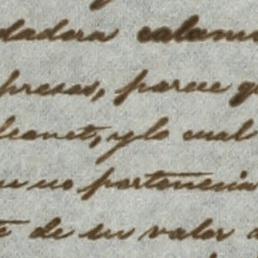 dadera calami
presas, parece q
leanet, y lo cual
no pertenecia
de su valor